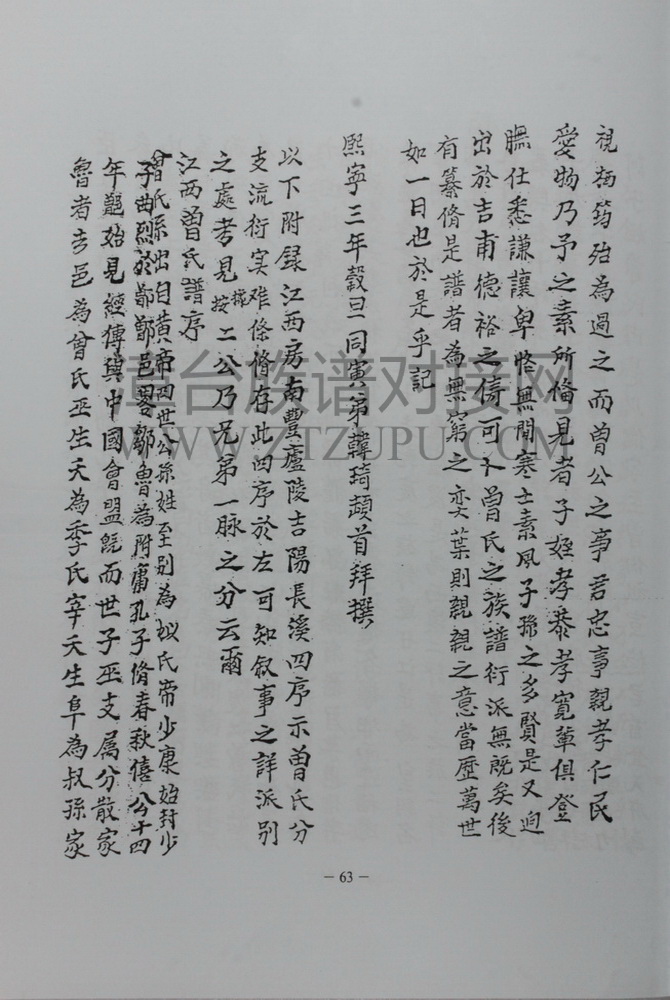 視栖筠殆為過之而曾公之事君忠事親孝仁民
愛物乃予之素所脩見者子姪孝泰孝寬輩俱登
膴仕悉謙讓卑恪無間寒士素風子孫之多賢是又迨
出於吉甫德裕之儔可卜曾氏之族譜衍派無既矣後
有纂脩是譜者為無窮之奕葉則親親之意當歷萬世
如一日也於是乎記
熙寧三年穀旦同寅弟韓琦頓首拜撰
以下附錄江西房南豐廬陵吉陽長溪四序示曾氏分
支流衍実难條脩存此四序於左可知叙事之詳派別
之處考見 據按二公乃兄弟一脉之分云爾
江西曾氏譜序
曾氏系出自黃帝四世公孫姓至別為姒氏帝少康始封少
子曲烈於鄫鄫邑畧鄒魯為附庸孔子脩春秋僖公十四
年鄫始見經傳與中國會盟旣而世子巫支属分散家
魯者去邑為曾氏巫生夭為季氏宰夭生阜為叔孫家
－63－
章台族谱对接网
WWW.ZTZUPU.COM